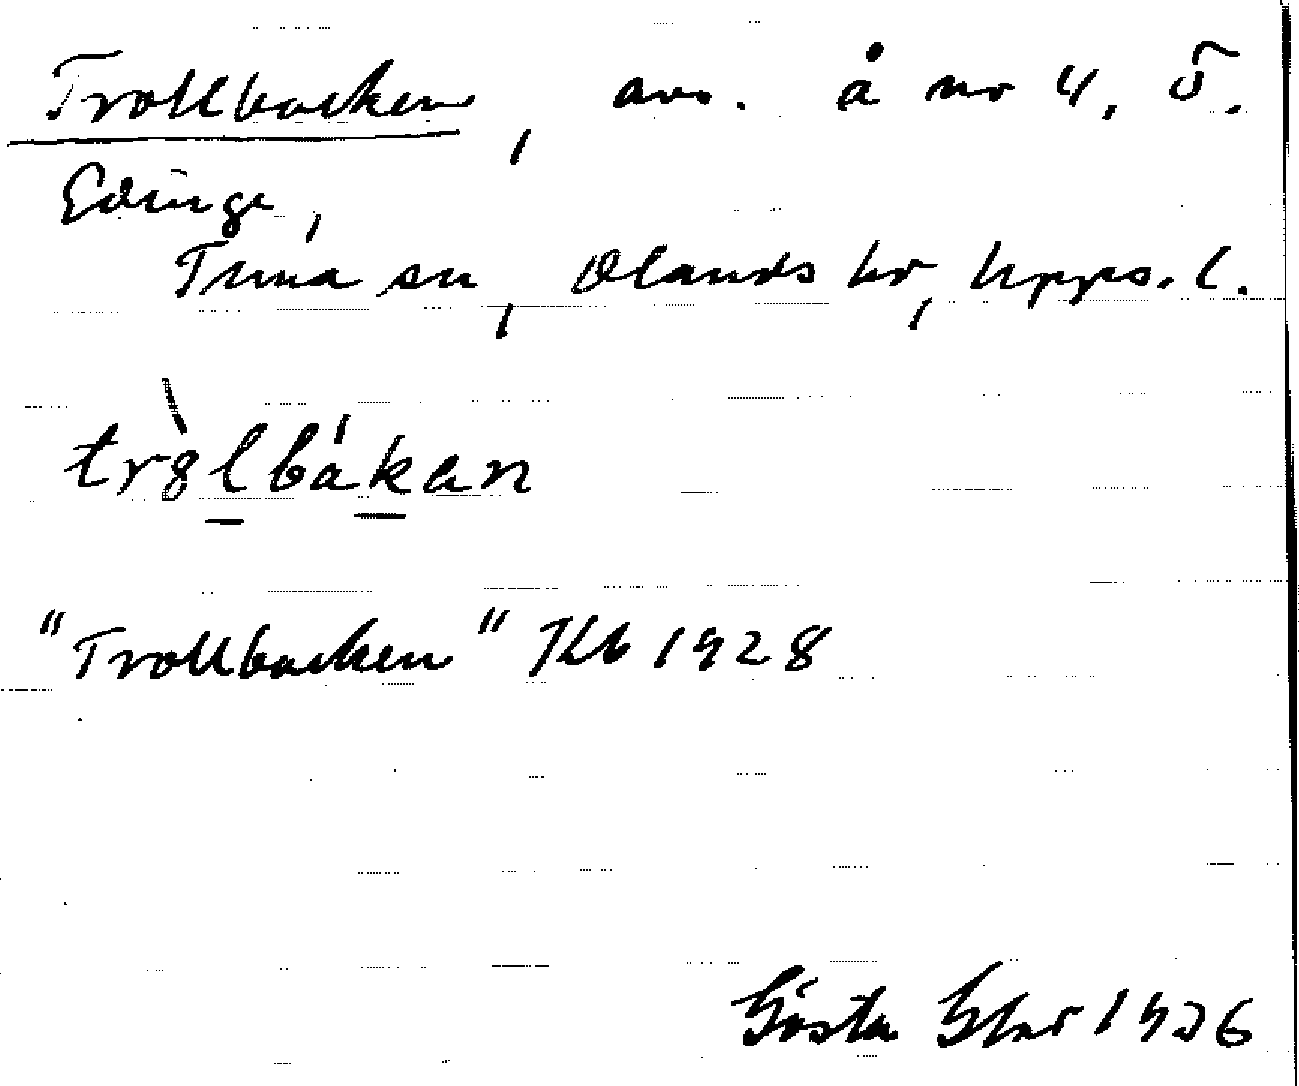 Trollbacken, avs. å nr 4, Ö.
Edinge,
Tuna sn, Olands hd, Upps. l.
tròlbákan
"Trollbacken" Kb 1928
Gösta 1936